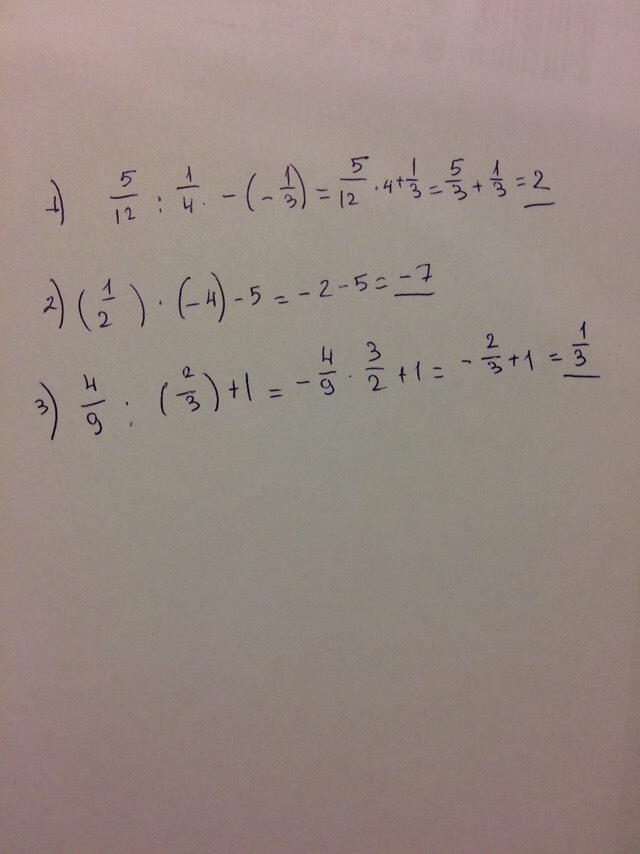 1) 5/12 : 1/4 · - (- 1/3) = 5/12 · 4 + 1/3 = 5/3 + 1/3 = 2
2) (1/2) · (-4) - 5 = - 2 - 5 = - 7
3) 4/9 : (2/3) + 1 = - 4/9 · 3/2 + 1 = - 2/3 + 1 = 1/3